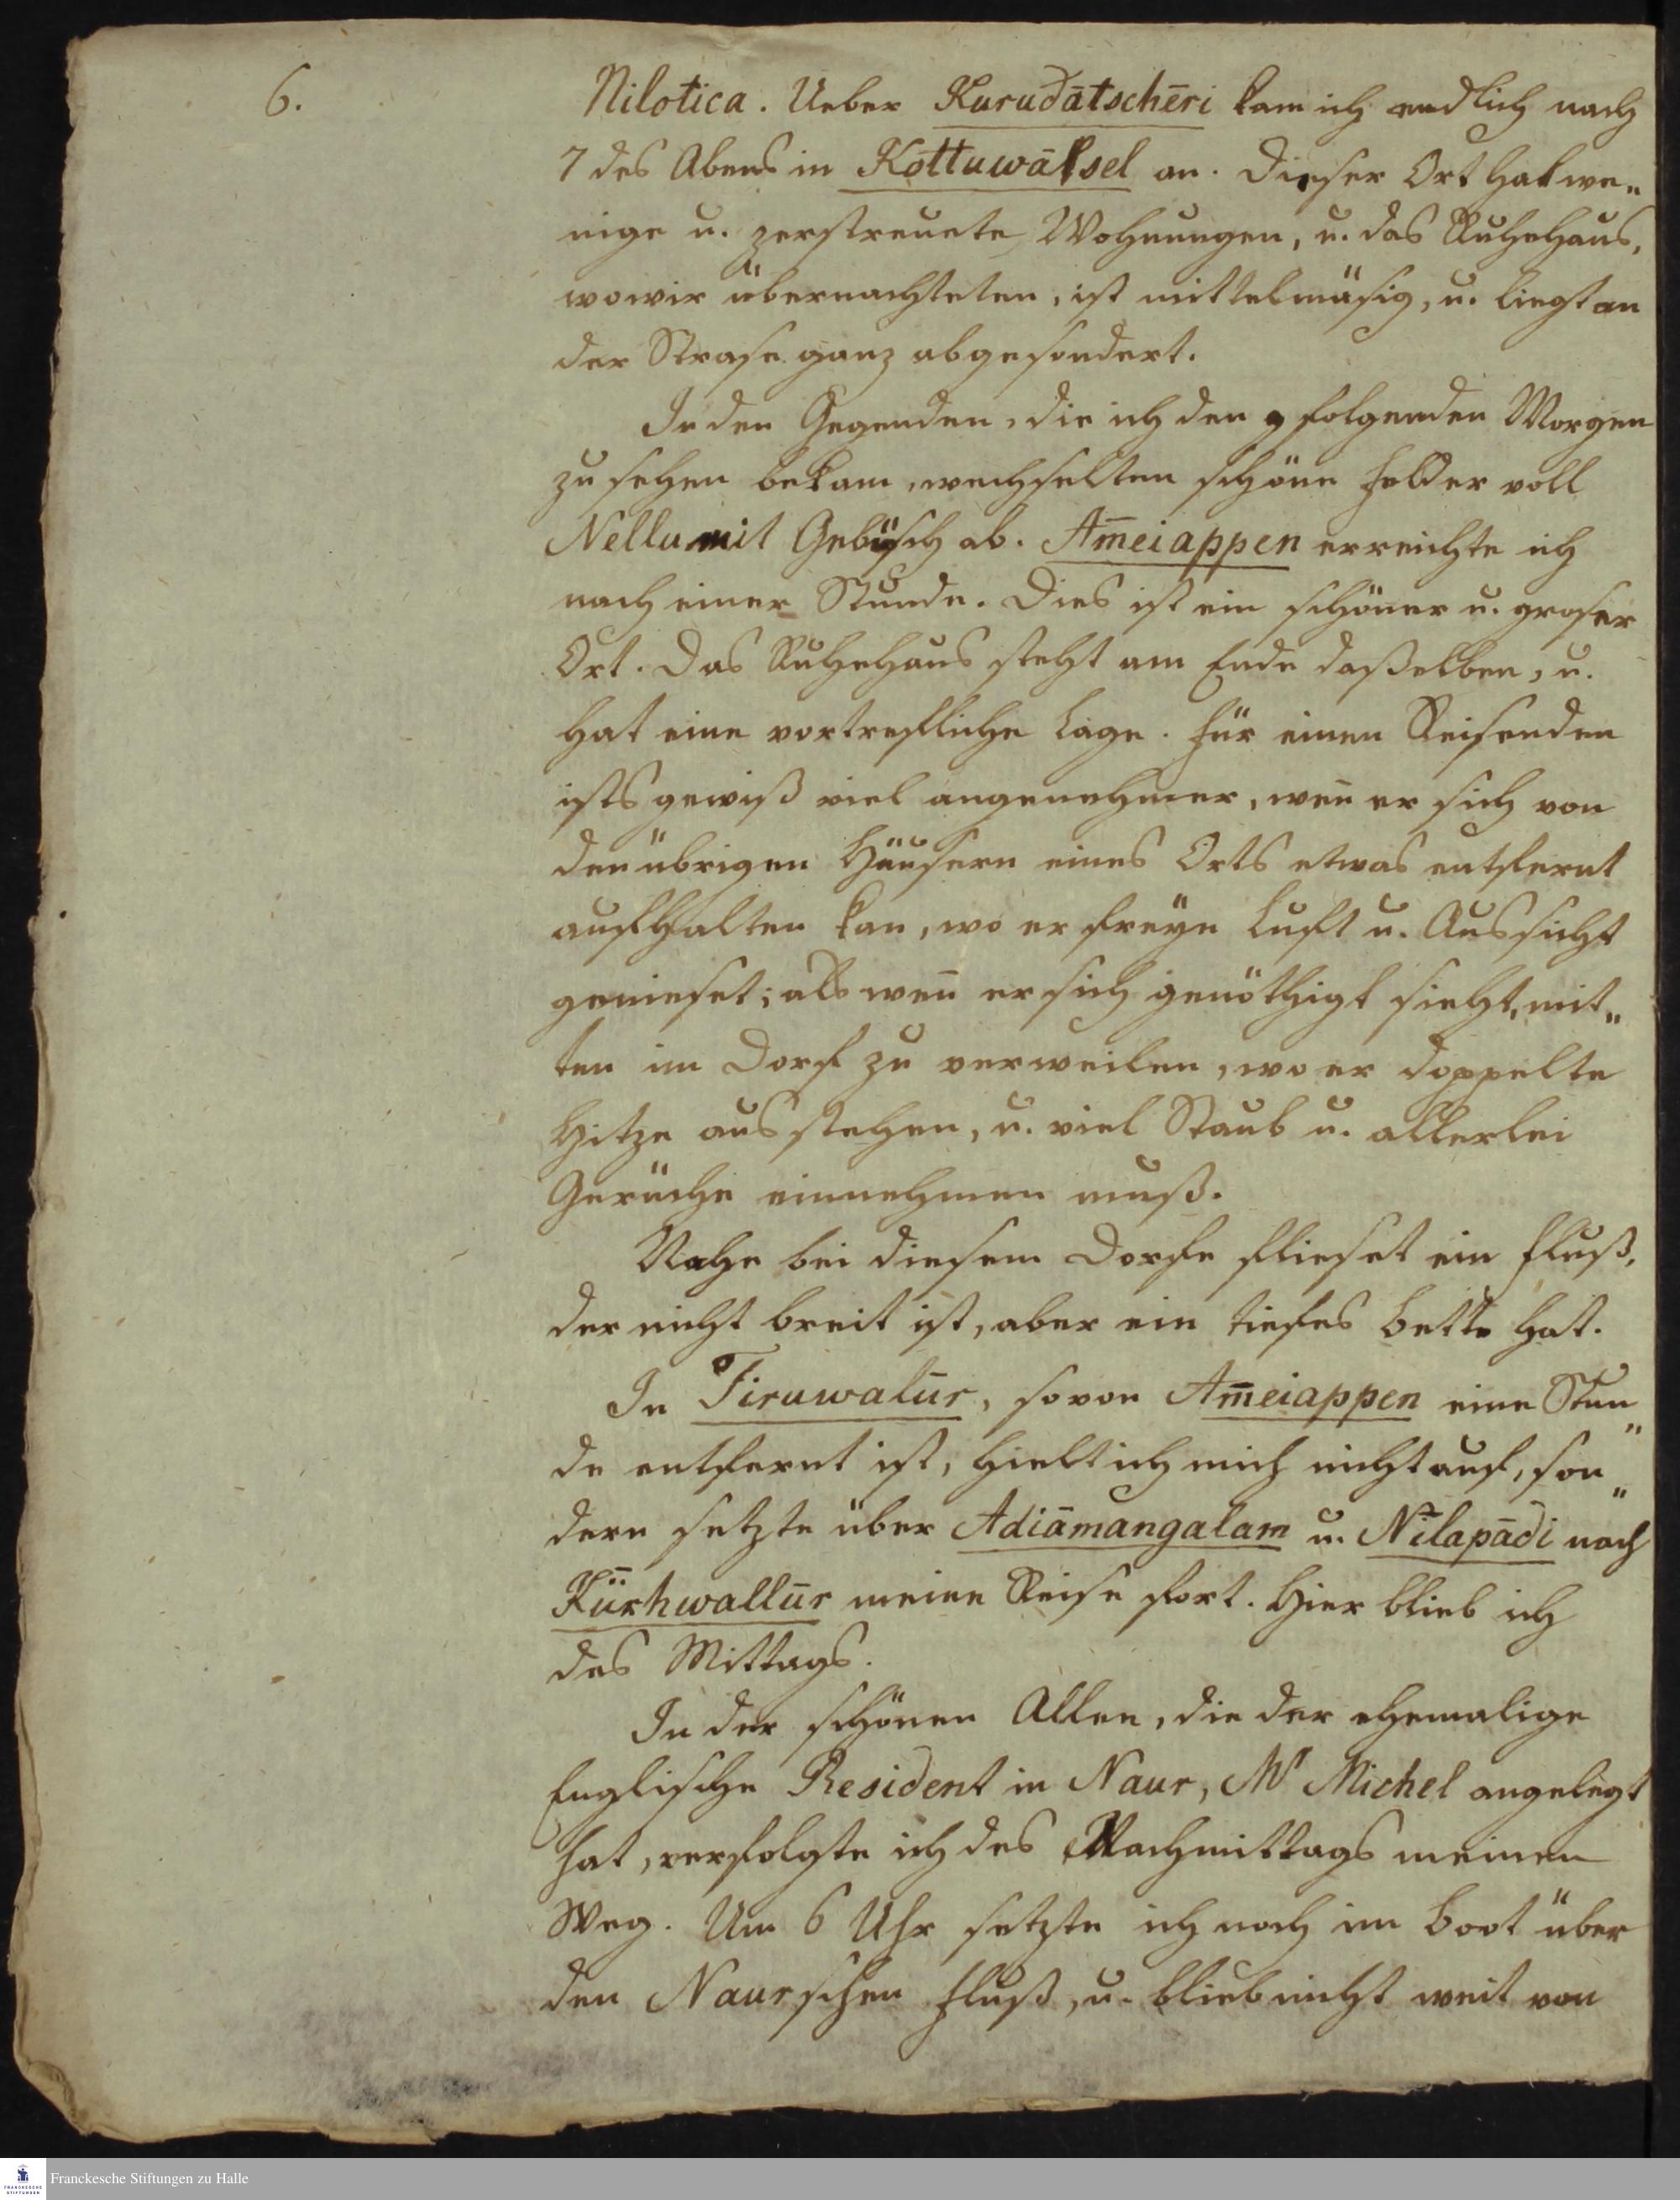 6.
Nilotica. Ueber Kurudātschēri kam ich endlich nach
7 des Abens in Kottuwāsel an. Dieser Ort hat we„
nige u. zerstreuete Wohnungen, u. das Ruhehaus,
wo wir übernachteten, ist mittelmäsig, u. liegt an
der Strase ganz abgesondert.
In den Gegenden, die ich den folgenden Morgen
zu sehen bekam, wechselten schöne Felder voll
Nellu mit Gebüsch ab. Am̄eiappen erreichte ich
nach einer Stunde. Dies ist ein schöner u. groser
Ort. Das Ruhehaus steht am Ende daßelben, u.
hat eine vortrefliche Lage. Für einen Reisenden
ists gewiß viel angenehmer, wen̄ er sich von
den übrigen Häusern eines Orts etwas entfernt
aufhalten kan, wo er freye Luft u. Aussicht
genieset; als wen̄ er sich genöthigt sieht, mit„
ten im Dorf zu verweilen, wo er doppelte
Hitze ausstehen, u. viel Staub u. allerlei
Gerüche einnehmen muß.
Nahe bei diesem Dorfe flieset ein Fluß,
der nicht breit ist, aber ein tiefes Bette hat.
In Tiruwalūr, so von Am̄eiappen eine Stun„
de entfernt ist, hielt ich mich nicht auf, son„
dern setzte über Adiāmangalam u. Nīlapādi nach
Kürhwallūr meine Reise fort. Hier blieb ich
des Mittags.
In der schönen Allee, die der ehemalige
Englische Resident in Naur, Mr Michel angelegt
hat, verfolgte ich des Nachmittags meinen
Weg. Um 6 Uhr setzte ich noch im Boot über
den Naurschen Fluß, u. blieb nicht weit von
Franckesche Stiftungen zu Halle
FRANCKESCHE
STIFTUNGEN